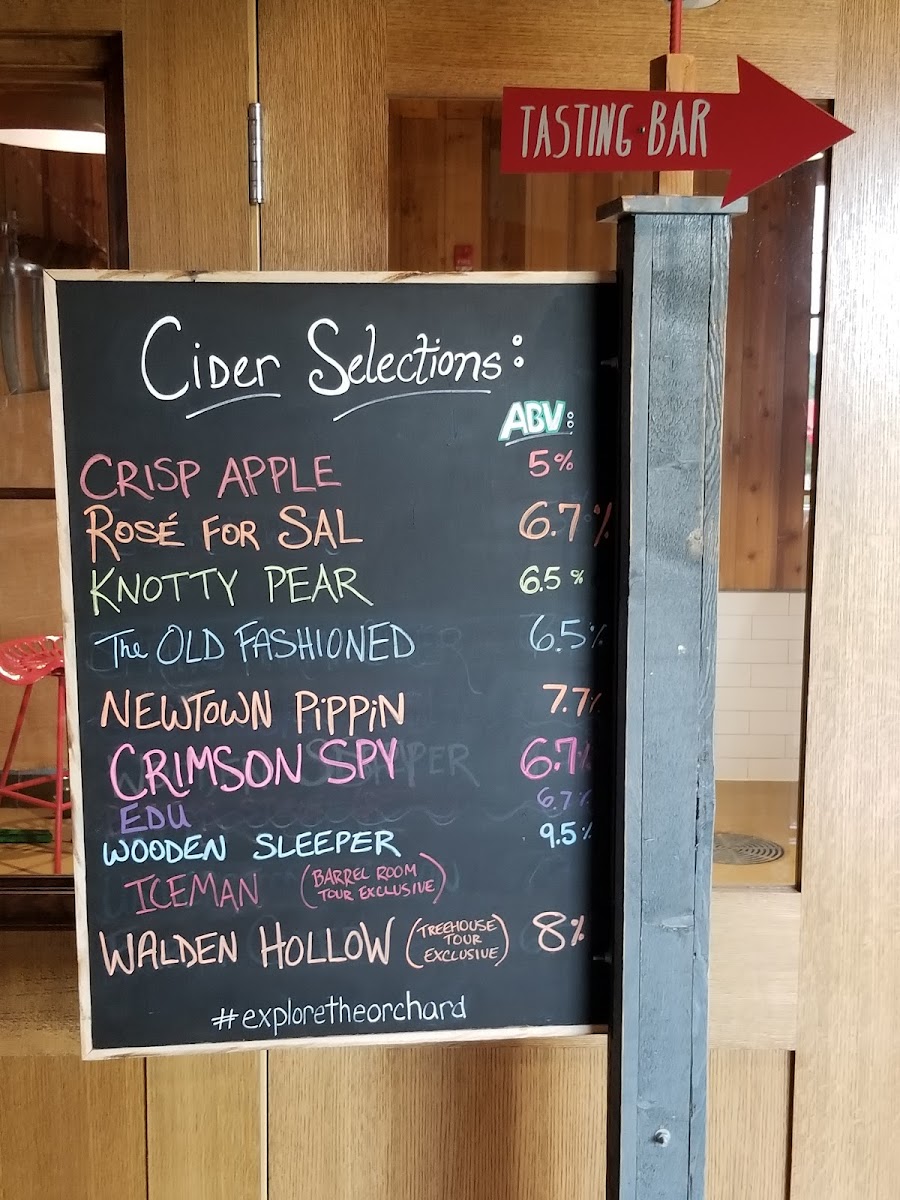 TASTING·BAR
Cider Selections:
ABV:
CRISP APPLE 5%
ROSÉ FOR SAL 6.7%
KNOTTY PEAR 6.5%
The OLD FASHIONED 6.5%
NEWTOWN PiPPiN 7.7%
CRIMSON SPY 6.7%
EDU 6.7%
WOODEN SLEEPER 9.5%
ICEMAN (BARREL ROOM
TOUR EXCLUSIVE)
WALDEN HOLLOW (TREEHOUSE
TOUR
EXCLUSIVE) 8%
#exploretheorchard